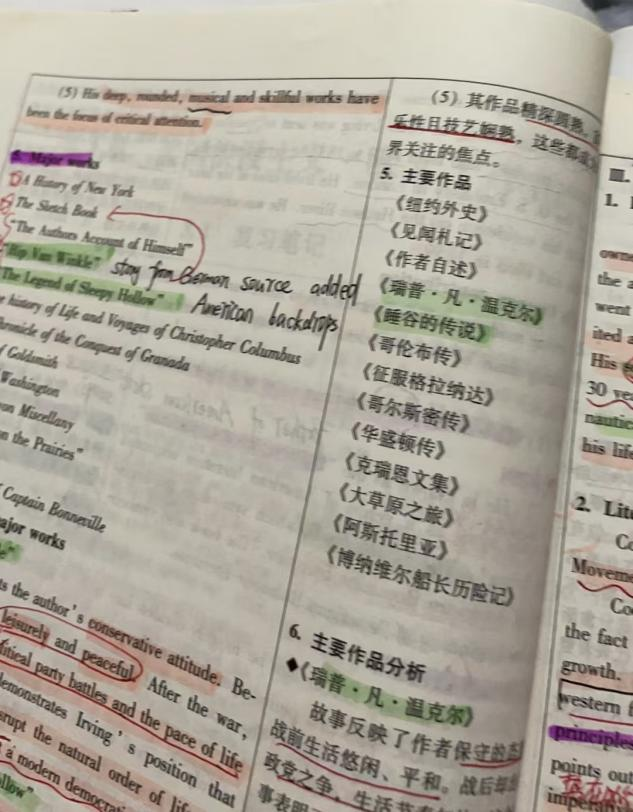 (5) His deep, rounded, musical and skillful works have
been the focus of critical attention.
Major works
① A History of New York
The Sketch Book
"The Authors Account of Himself"
"Rip Van Winkle" story from German source added
The Legend of Sleepy Hollow" American backdrops
history of Life and Voyages of Christopher Columbus
hronicle of the Conquest of Granada
Goldsmith
Washington
Miscellany
on the Prairies"
Captain Bonneville
ajor works
the author's conservative attitude. Be-
leisurely and peaceful. After the war,
litical party battles and the pace of life
demonstrates Irving's position that
rupt the natural order of
a modern
llow"
(5) 其作品精深圆熟,
乐性且技艺娴熟,这些都
界关注的焦点。
5. 主要作品
《纽约外史》
《见闻札记》
《作者自述》
《瑞普·凡·温克尔》
《睡谷的传说》
《哥伦布传》
《征服格拉纳达》
《哥尔斯密传》
《华盛顿传》
《克瑞恩文集》
《大草原之旅》
《阿斯托里亚》
《博纳维尔船长历险记》
6. 主要作品分析
◆《瑞普·凡·温克尔》
故事反映了作者保守的
战前生活悠闲、平和。战后却
政党之争、生活
事表明
Ⅲ.
1.
the a
went
ited a
His
30 ye
nautic
his life
2. Lit
Movem
Coo
the fact
growth.
western
principles
points out